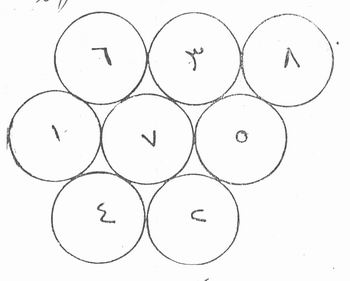 ٦ ٣ ٨
١ ٧ ٥
٤ ٢